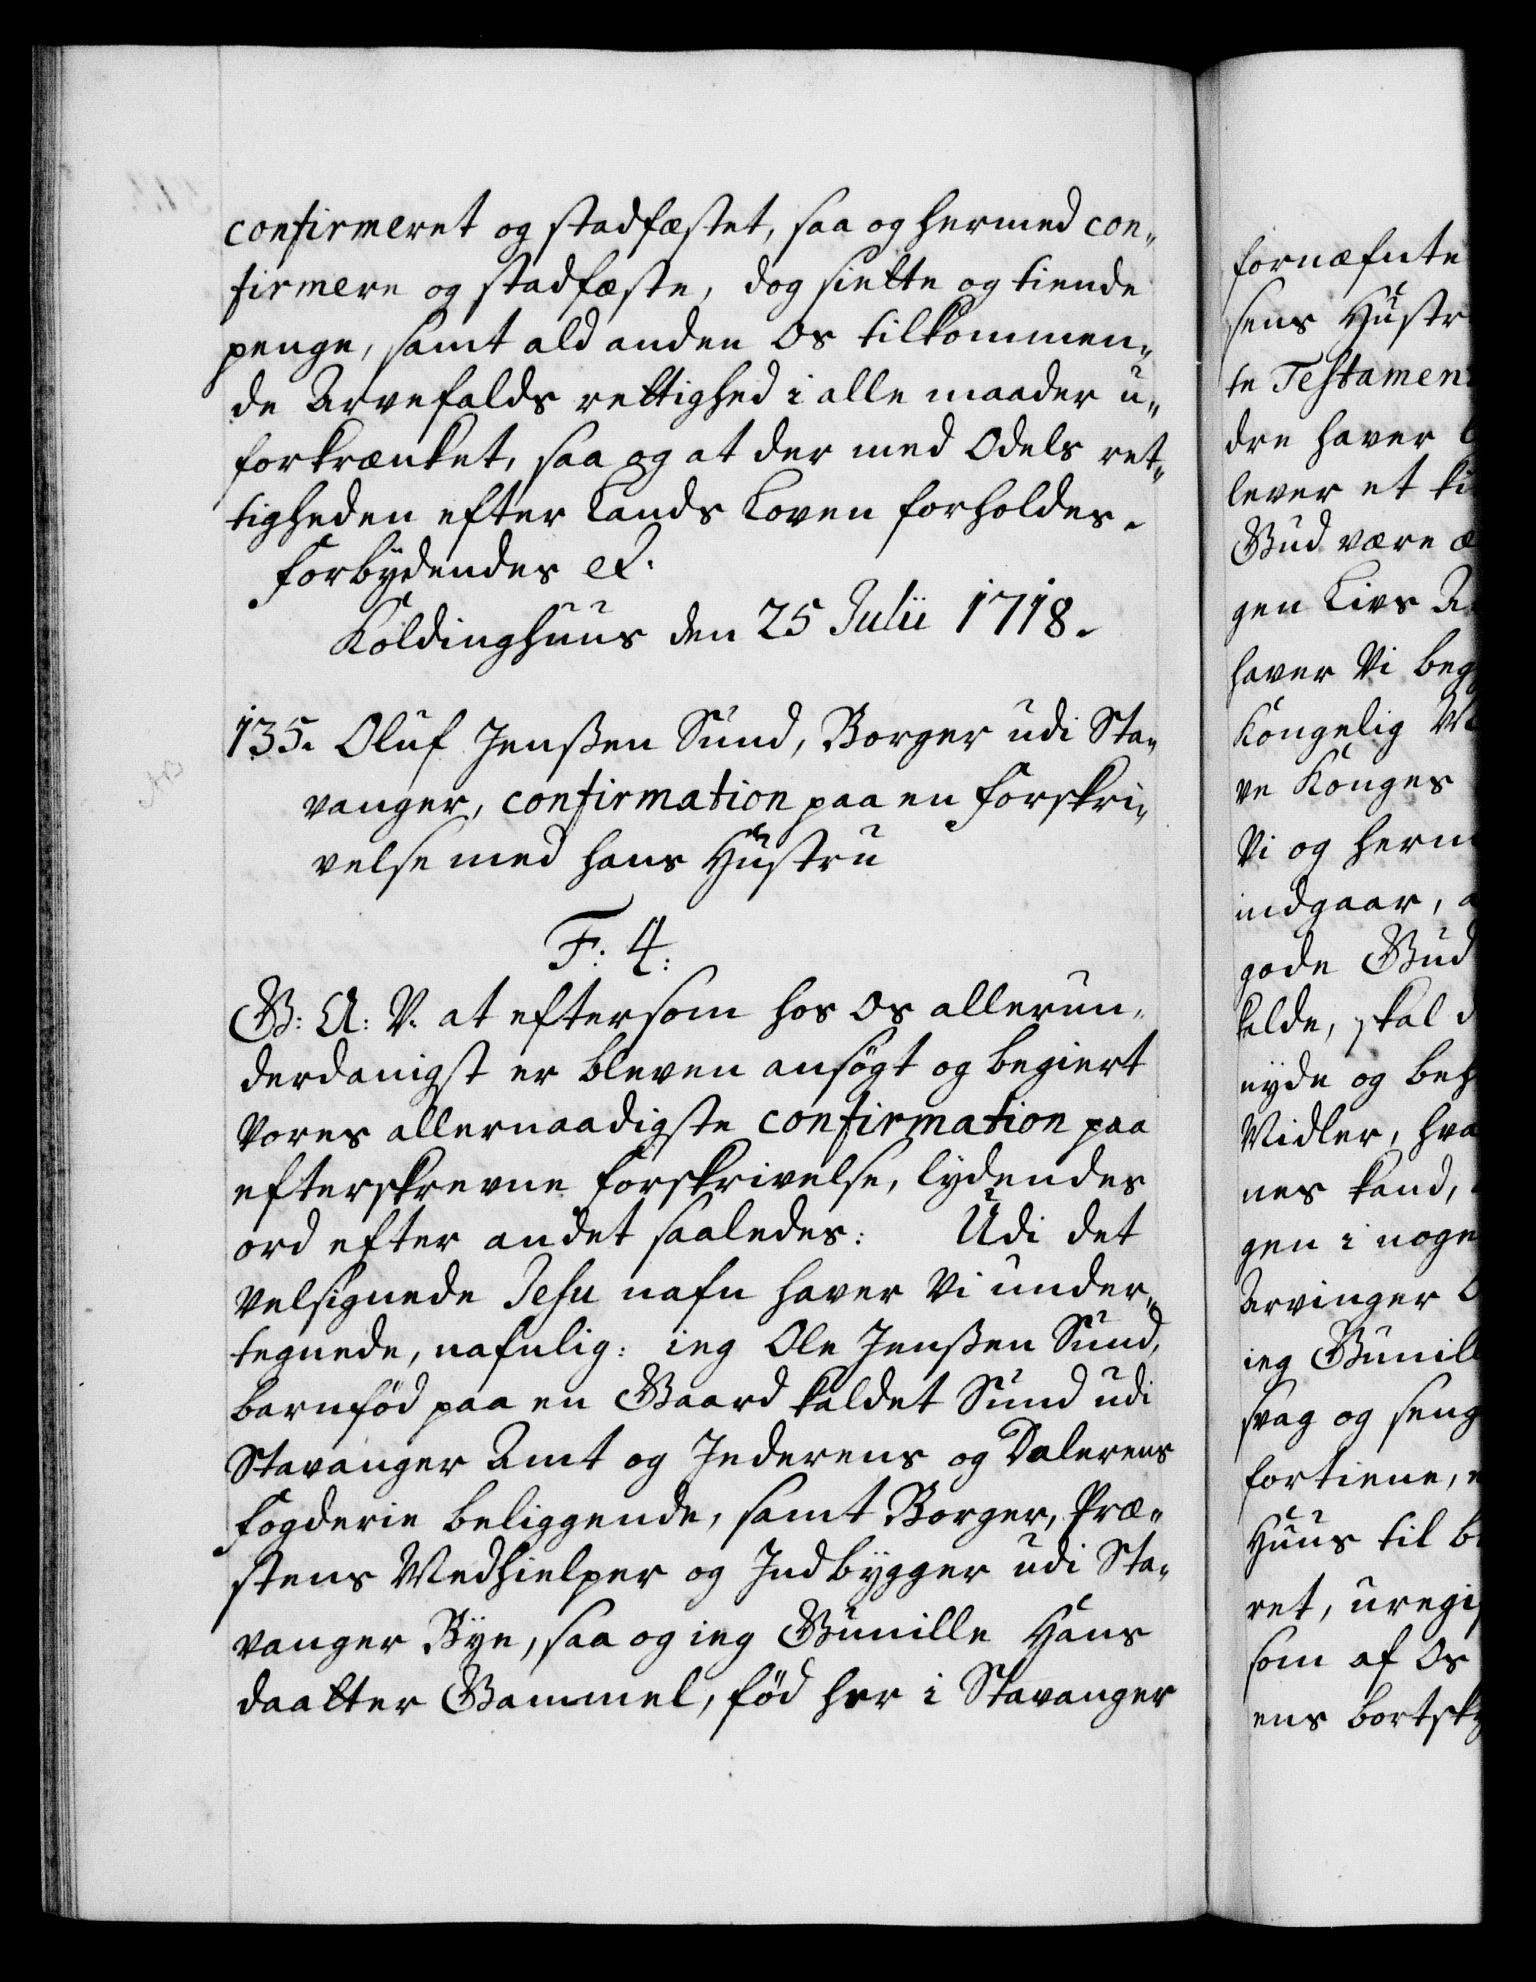 confirmeret og stadfæstet, saa og hermed con„
firmere og stadfæste, dog siette og tiende
penge, samt ald anden Os tilkommen„
de Arvefalds rettighed i alle maader u„
forkrænket, saa og at der med Odels ret„
tigheden efter Lands Loven forholdes.
Forbÿdendes &.
Koldinghuus den 25 Julii 1718.
135. Oluf Jenßen Sund, Borger udi Sta„
vanger, confirmation paa en Forskri„
velse med hans Hustru
F: 4:
G: A: V. at eftersom hos Os allerun„
derdanigst er bleven ansøgt og begiert
Vores allernaadigste confirmation paa
efterskrevne Forskrivelse, lydendes
ord efter andet saaledes: Udi det
velsignede Jesu nafn haver Vi under„
tegnede, nafnlig: ieg Ole Jenßen Sund,
barnfød paa en Gaard kaldet Sund udi
Stavanger Amt og Jederens og Dalerens
Fogderie beliggende, samt Borger, Præ„
stens Medhielper og Indbÿgger udi Sta„
vanger Bÿe, saa og ieg Gunille Hans
daatter Gammel, fød her i Stavanger
fornæfnte
sens Hustr
te Testamen
dre haver
lever et ki
Gud være
gen Livs
haver Vi beg
Kongelig
ve Konges
Vi og herm
indgaar,
gode Gud
kalde, skal
nyde og beh
Midler, hva
nes kand,
gen i noge
Arvinger
ieg Gunill
svag og seng
fortiene,
Huus til
ret, uregi
som af Os
ens bortsk